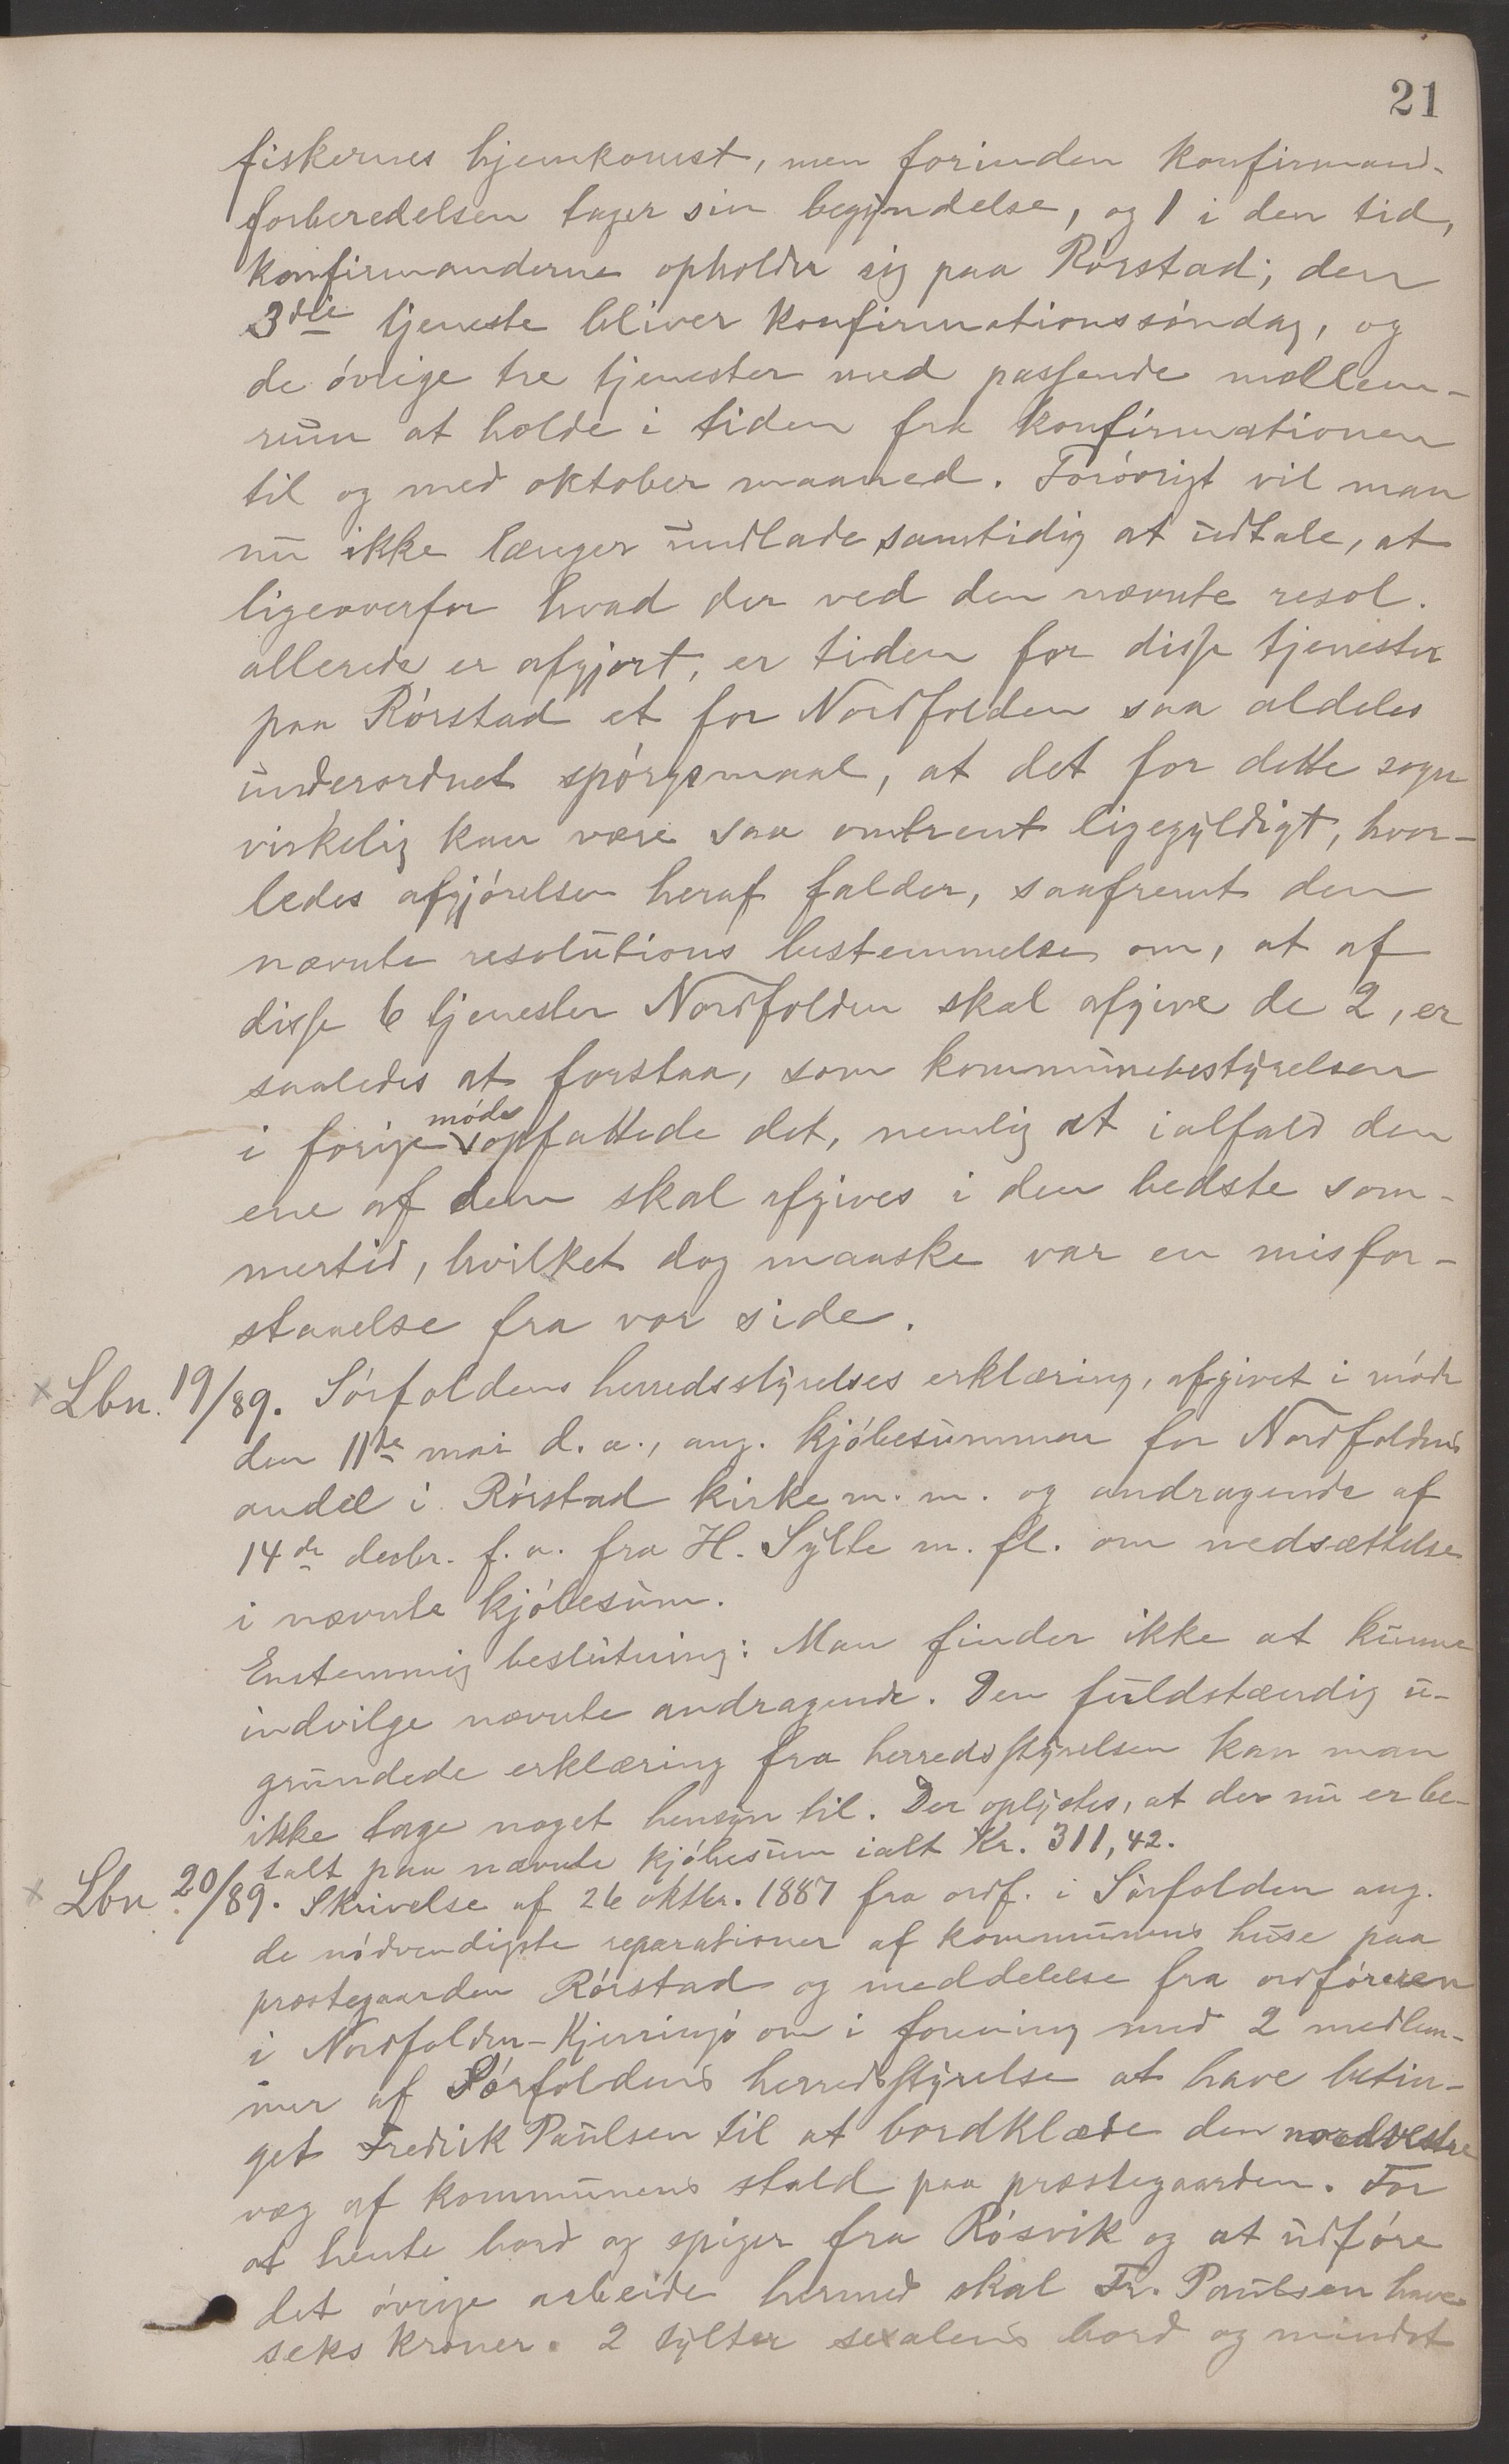 21
fiskernes hjemkomst, men forinden konfirmand-
forberedelsen tager sin begyndelse, og 1 i den tid,
konfirmanderne opholder sig paa Rørstad; den
3die tjeneste bliver konfirmationssøndag, og
de øvrige tre tjenester med passende mellem-
rum at holde i tiden fra konfirmationen
til og med oktober maaned. Forøvrigt vil man
nu ikke længer undlade samtidig at udtale, at
ligeoverfor hvad der ved den nævnte resol.
allerede er afgjort, er tiden for disse tjenester
paa Rørstad et for Nordfolden saa aldeles
underordnet spørgsmaal, at det for dette sogn
virkelig kan være saa omtrent ligegyldigt, hvor-
ledes afgjørelsen heraf falder, saafremt den
nævnte resolutions bestemmelse om, at af
disse 6 tjenester Nordfolden skal afgive de 2, er
saaledes at forstaa, som kommunebestyrelsen
i forige møde opfattede det, nemlig at ialfald den
ene af dem skal afgives i den bedste som-
mertid, hvilket dog maaske var en misfor-
staaelse fra vor side.
x Lbn. 19/89. Sørfoldens herredsstyrelses erklæring, afgivet i møde
den 11de mai d. a., ang. kjøbesummen for Nordfoldens
andel i Rørstad kirke m. m. og andragende af
14de decbr. f. a. fra H. Sylte m. fl. om nedsættelse
i nævnte kjøbesum.
Enstemmig beslutning: Man finder ikke at kunne
indvilge nævnte andragende. Den fuldstændig u-
grundede erklæring fra herredsstyrelsen kan man
ikke tage noget hensyn til. Der oplystes, at der nu er be-
talt paa nævnte kjøbesum ialt Kr. 311,42.
x Lbn. 20/89. Skrivelse af 26 oktbr. 1887 fra ordf. i Sørfolden ang.
de nødvendigste reparationer af kommunens huse paa
præstegaarden Rørstad og meddelelse fra ordføreren
i Nordfolden-Kjerringø om i forening med 2 medlem-
mer af Sørfoldens herredsstyrelse at have betin-
get Fredrik Paulsen til at bordklæde den nordvestre
væg af kommunens stald paa præstegaarden. For
at hente bord og spiger fra Røsvik og at udføre
det øvrige arbeide hermed skal Fr. Paulsen have
seks kroner. 2 tylter sexalens bord og mindst